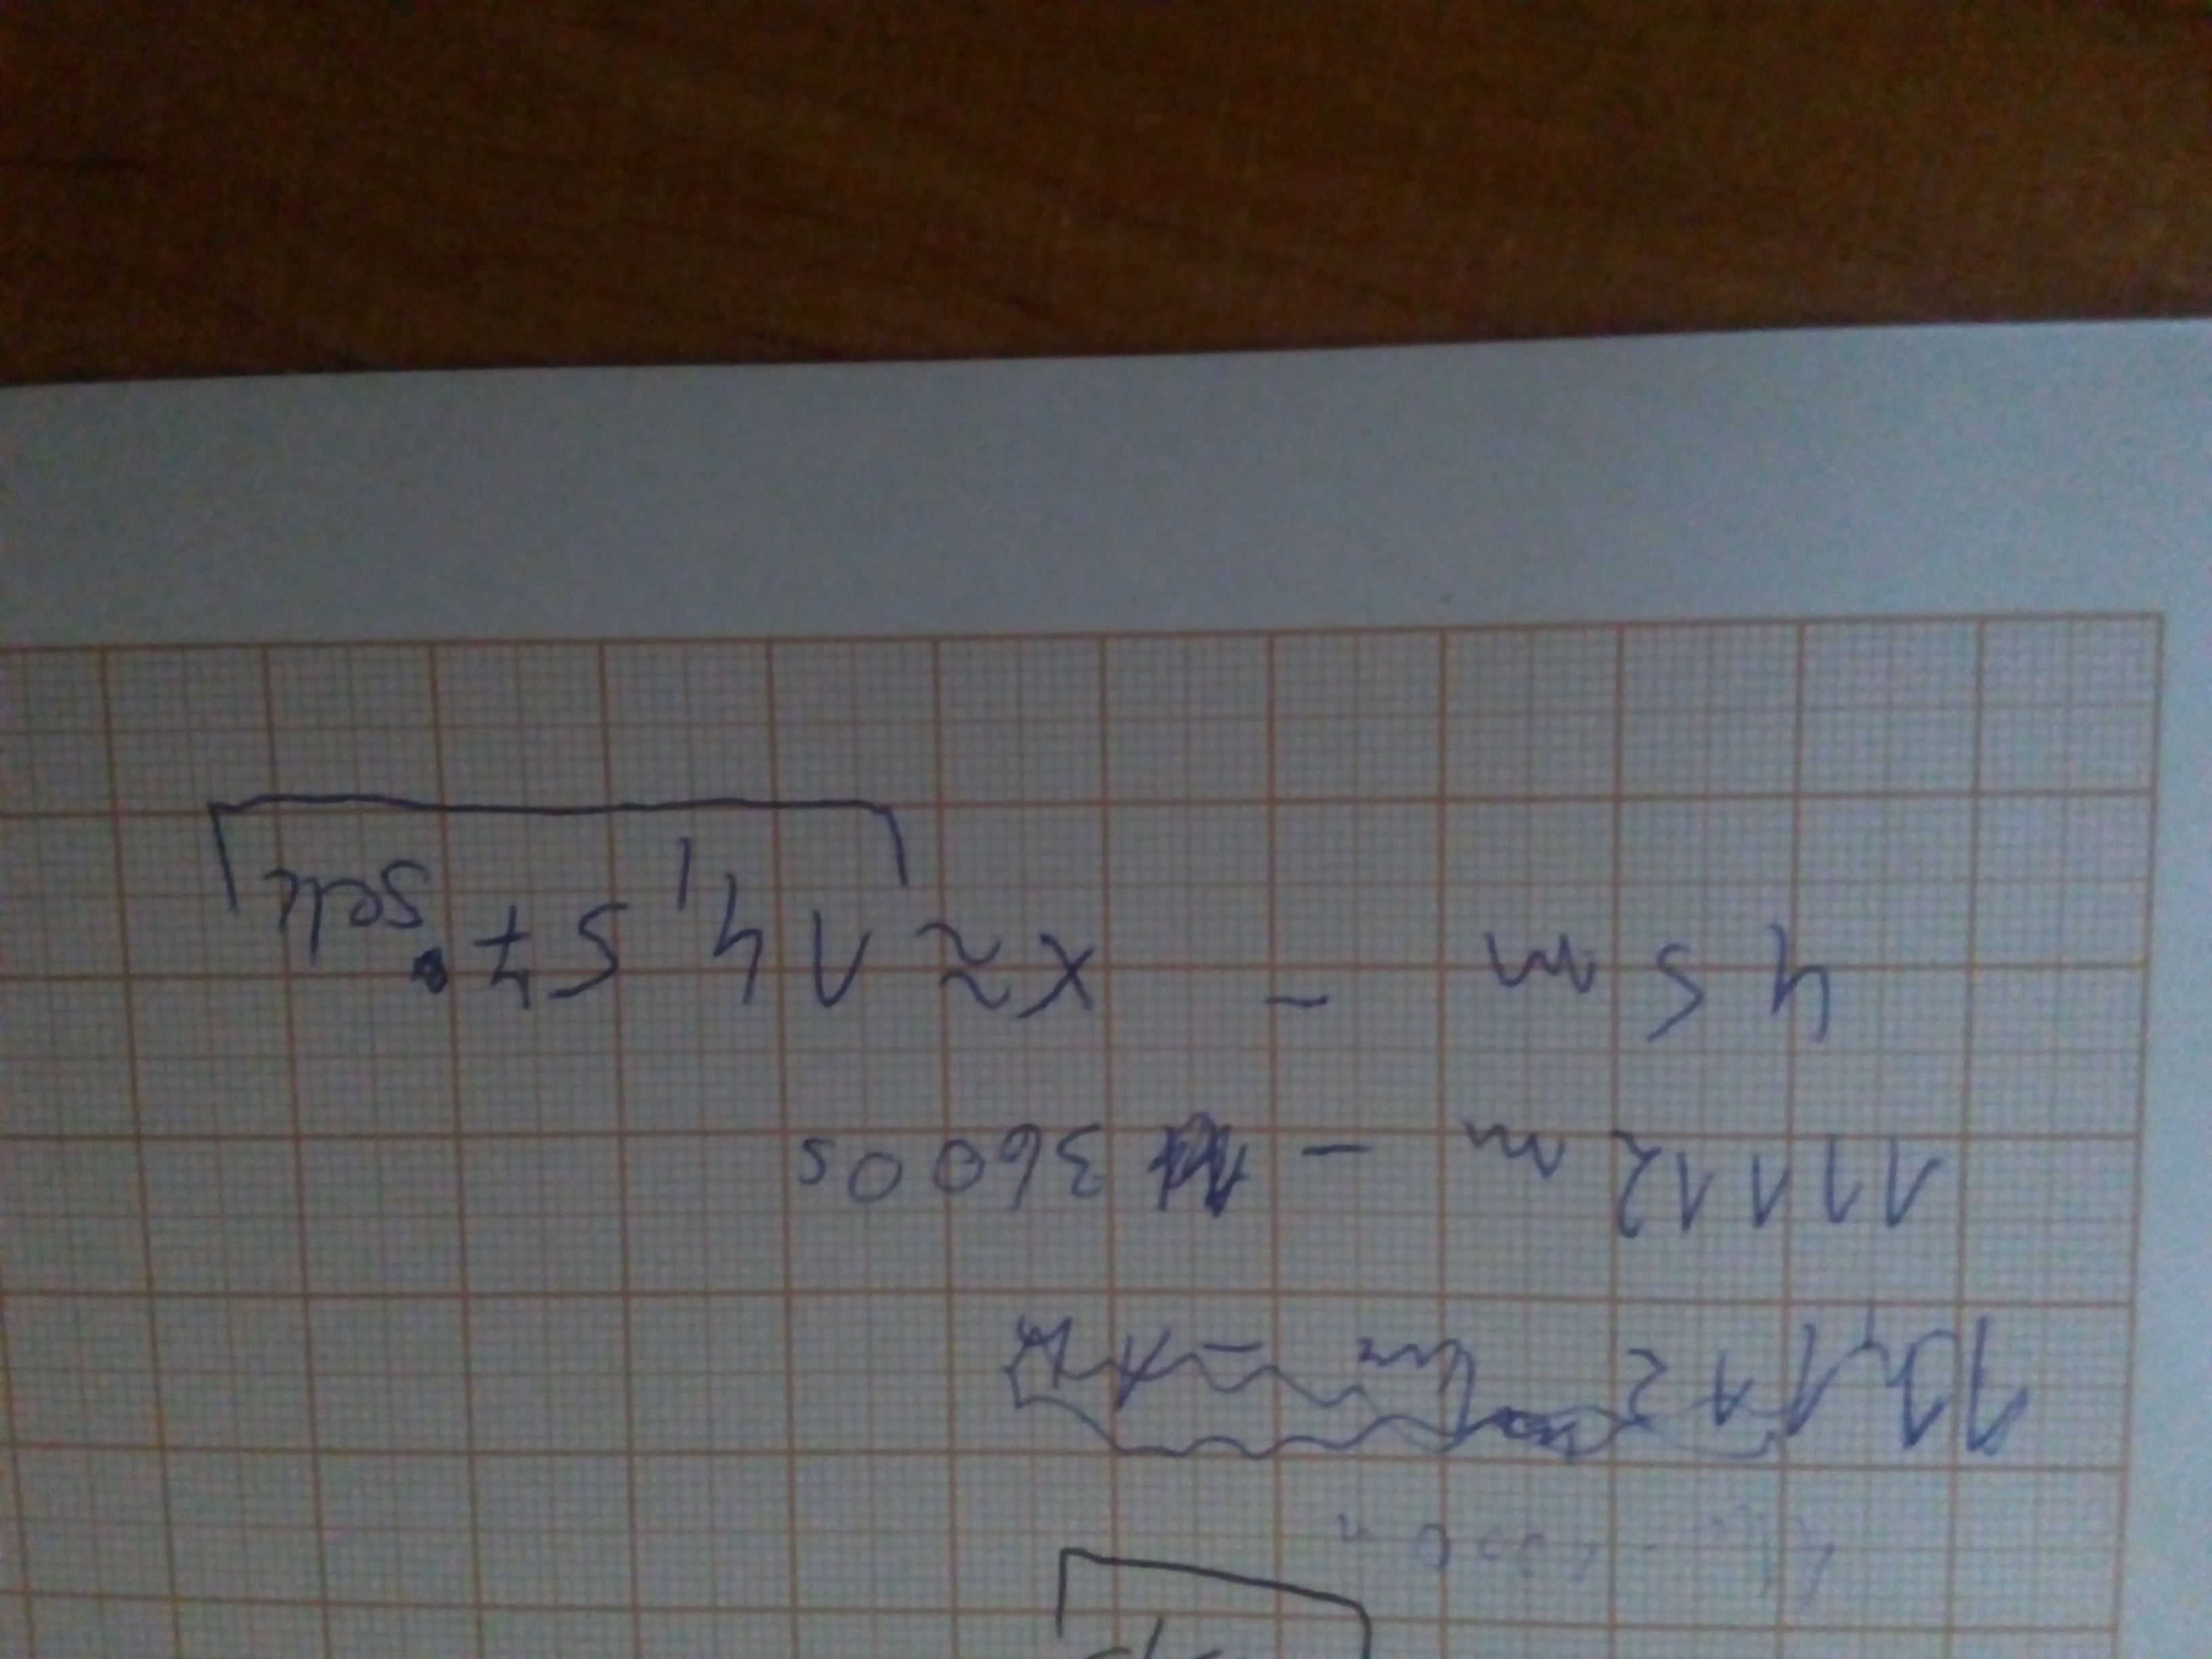 11,112 km - 1h
11112 m - 3600s
45m - x ≈ 14,57 sek